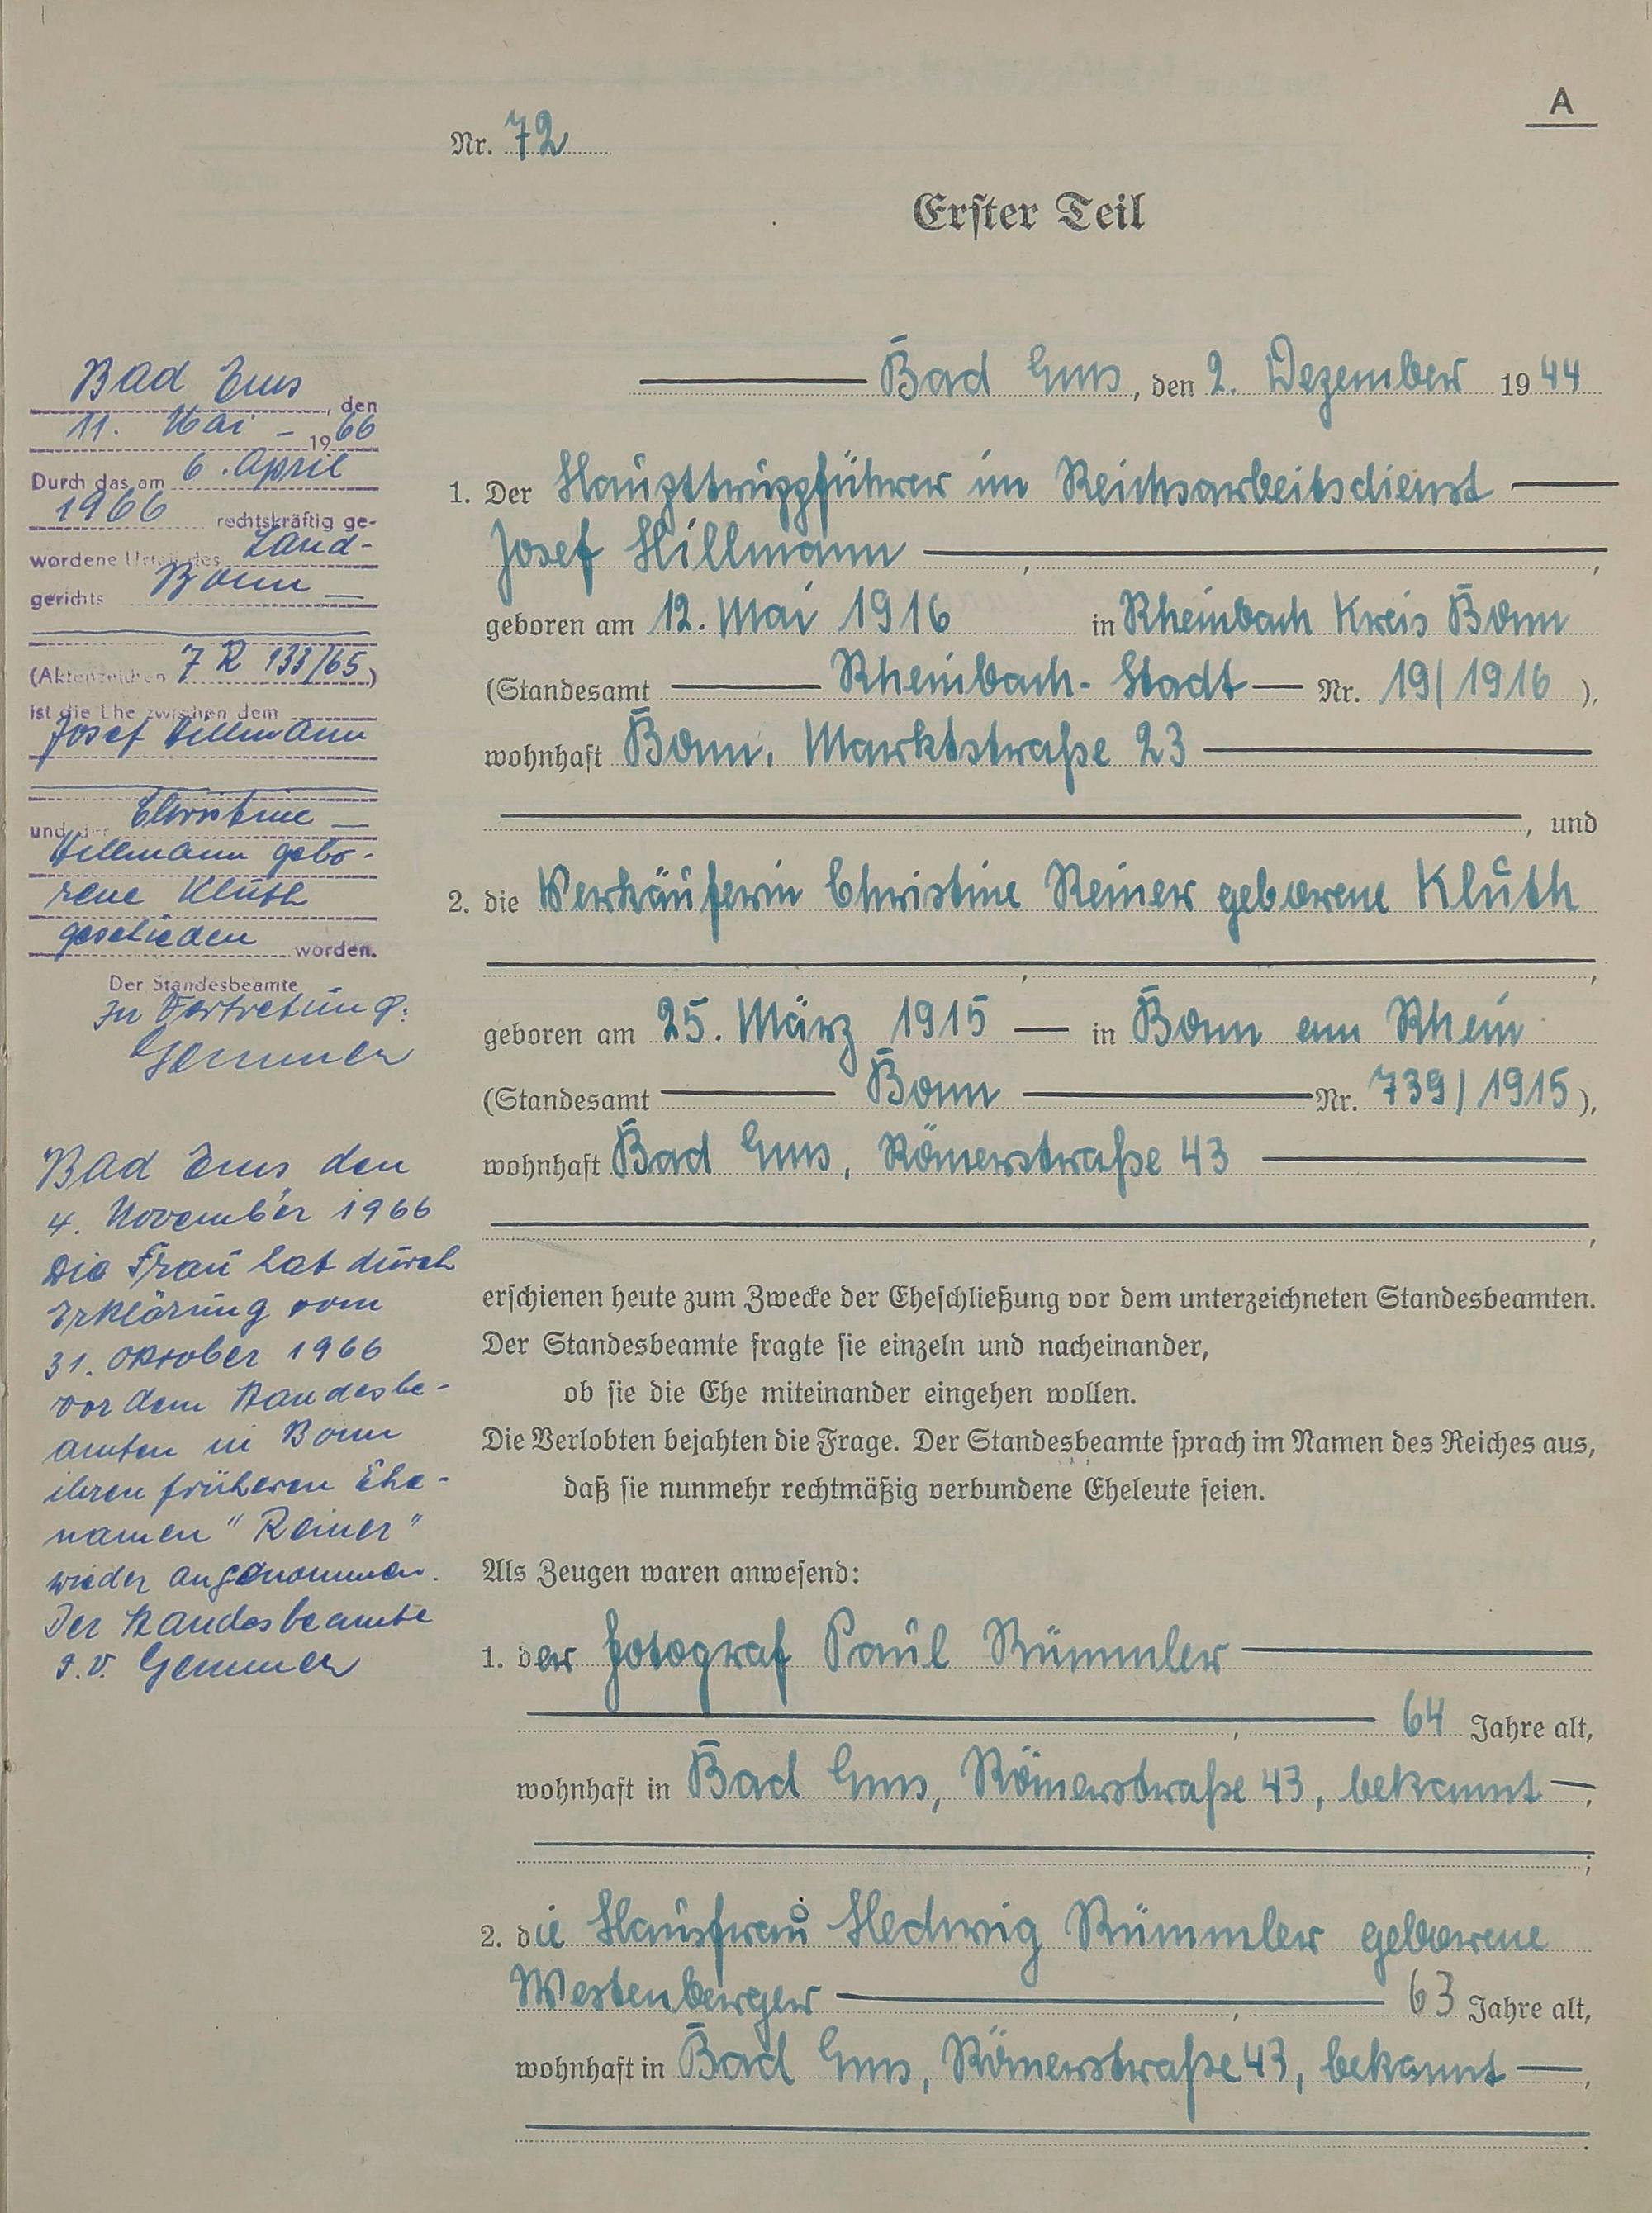 A
Nr. 72
Erster Teil
Bad Ems, den 2. Dezember 1944
1. Der Haupttruppführer im Reichsarbeitsdienst
Josef Hillmann,
geboren am 12. Mai 1916 in Rheinbach Kreis Bonn
(Standesamt Rheinbach-Stadt Nr. 19/1916),
wohnhaft Bonn, Marktstraße 23
, und
2. die Verkäuferin Christine Reiner geborene Kluth
,
geboren am 25. März 1915 in Bonn am Rhein
(Standesamt Bonn Nr. 739/1915),
wohnhaft Bad Ems, Römerstraße 43
,
erschienen heute zum Zwecke der Eheschließung vor dem unterzeichneten Standesbeamten.
Der Standesbeamte fragte sie einzeln und nacheinander,
ob sie die Ehe miteinander eingehen wollen.
Die Verlobten bejahten die Frage. Der Standesbeamte sprach im Namen des Reiches aus,
daß sie nunmehr rechtmäßig verbundene Eheleute seien.
Als Zeugen waren anwesend:
1. der Fotograf Paul Rümmler
, 64 Jahre alt,
wohnhaft in Bad Ems, Römerstraße 43, bekannt,
;
2. die Hausfrau Hedwig Rümmler geborene
Westenberger, 63 Jahre alt,
wohnhaft in Bad Ems, Römerstraße 43, bekannt,
.
Bad Ems, den
11. Mai - 1966
Durch das am 6. April
1966 rechtskräftig ge-
wordene Urteil des Land-
gerichts Bonn
(Aktenzeichen 7 R 133/65)
ist die Ehe zwischen dem
Josef Hillmann
und der Christine
Hillmann gebo-
rene Kluth
geschieden worden.
Der Standesbeamte
In Vertretung:
Gemmer
Bad Ems, den
4. November 1966
Die Frau hat durch
Erklärung vom
31. Oktober 1966
vor dem Standesbe-
amten in Bonn
ihren früheren Ehe-
namen "Reiner"
wieder angenommen.
Der Standesbeamte
I.V. Gemmer